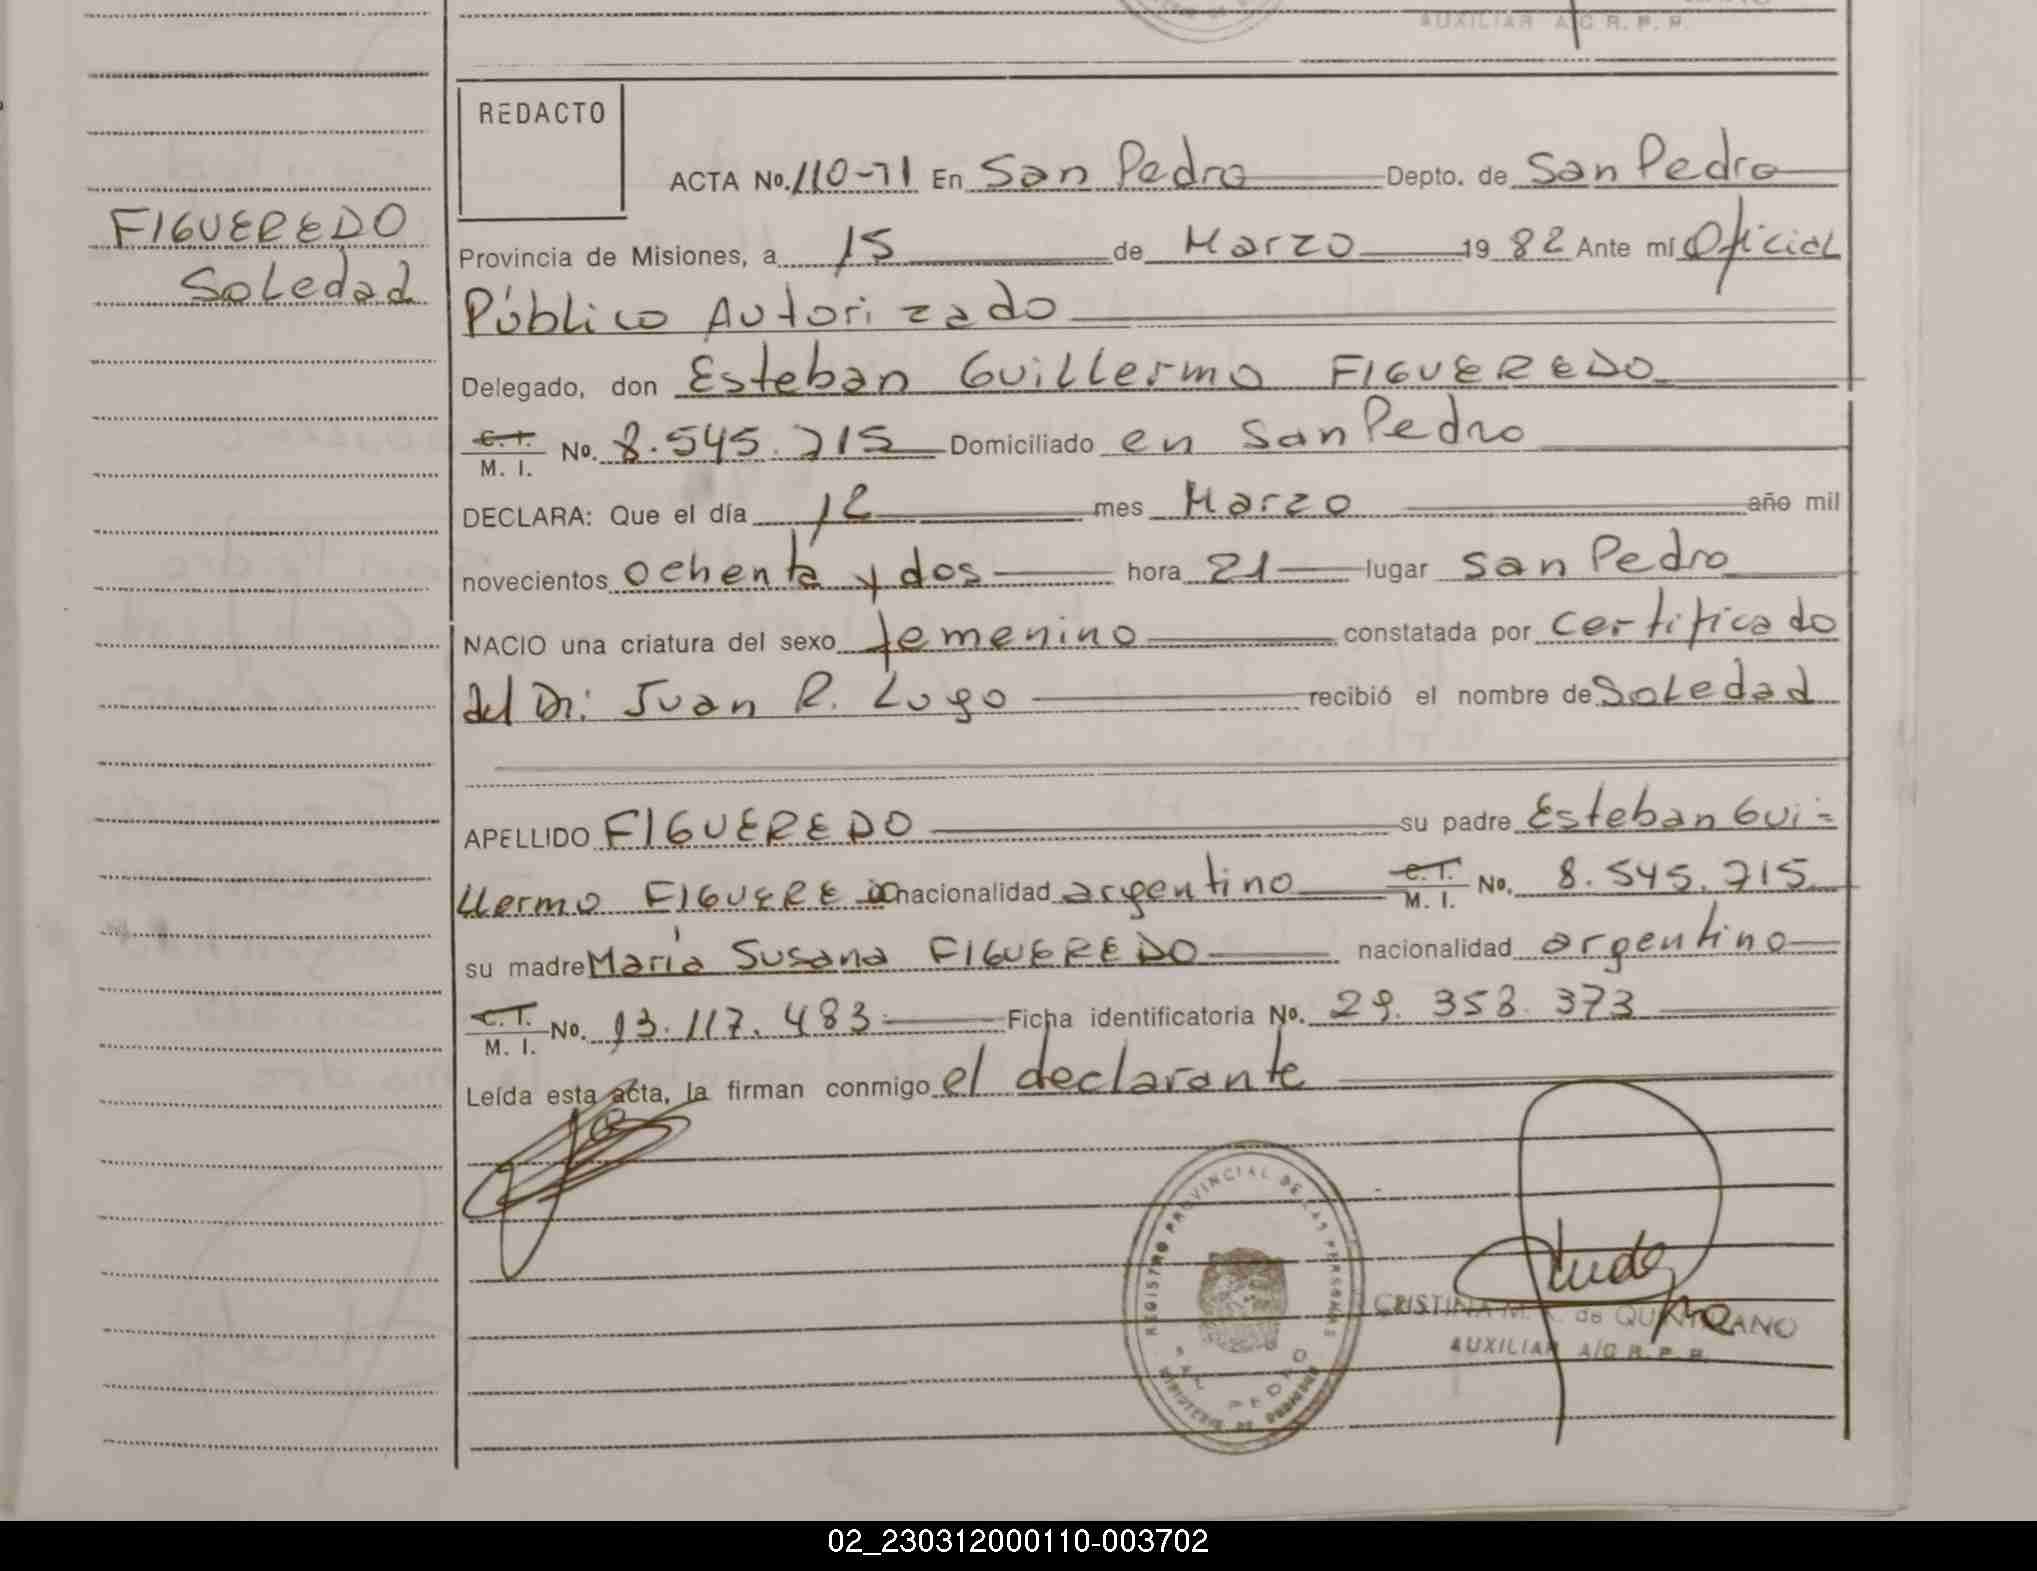 AUXILIAR A/C R. P. P.
REDACTO
ACTA No. 110-71 En San Pedro Depto. de San Pedro
FIGUEREDO
Soledad
Provincia de Misiones, a 15 de Marzo 19 82 Ante mí Oficial
Público Autorizado
Delegado, don Esteban Guillermo FIGUEREDO
C.I.
M. I. No. 8.545.715 Domiciliado en San Pedro
DECLARA: Que el día 12 mes Marzo año mil
novecientos ochenta y dos hora 21 lugar San Pedro
NACIO una criatura del sexo femenino constatada por certificado
del Dr: Juan R. Lugo recibió el nombre de Soledad
APELLIDO FIGUEREDO su padre Esteban Gui=
llermo FIGUEREDO nacionalidad argentino C.I.
M. I. No. 8.545.715
su madre María Susana FIGUEREDO nacionalidad argentino
C.I.
M. I. No. 13.117.483 Ficha identificatoria No. 29.358.373
Leída esta acta, la firman conmigo el declarante
REGISTRO PROVINCIAL DE LAS PERSONAS
SAN PEDRO
CRISTINA M. de QUINTRANO
AUXILIAR A/C R. P. P.
02_230312000110-003702